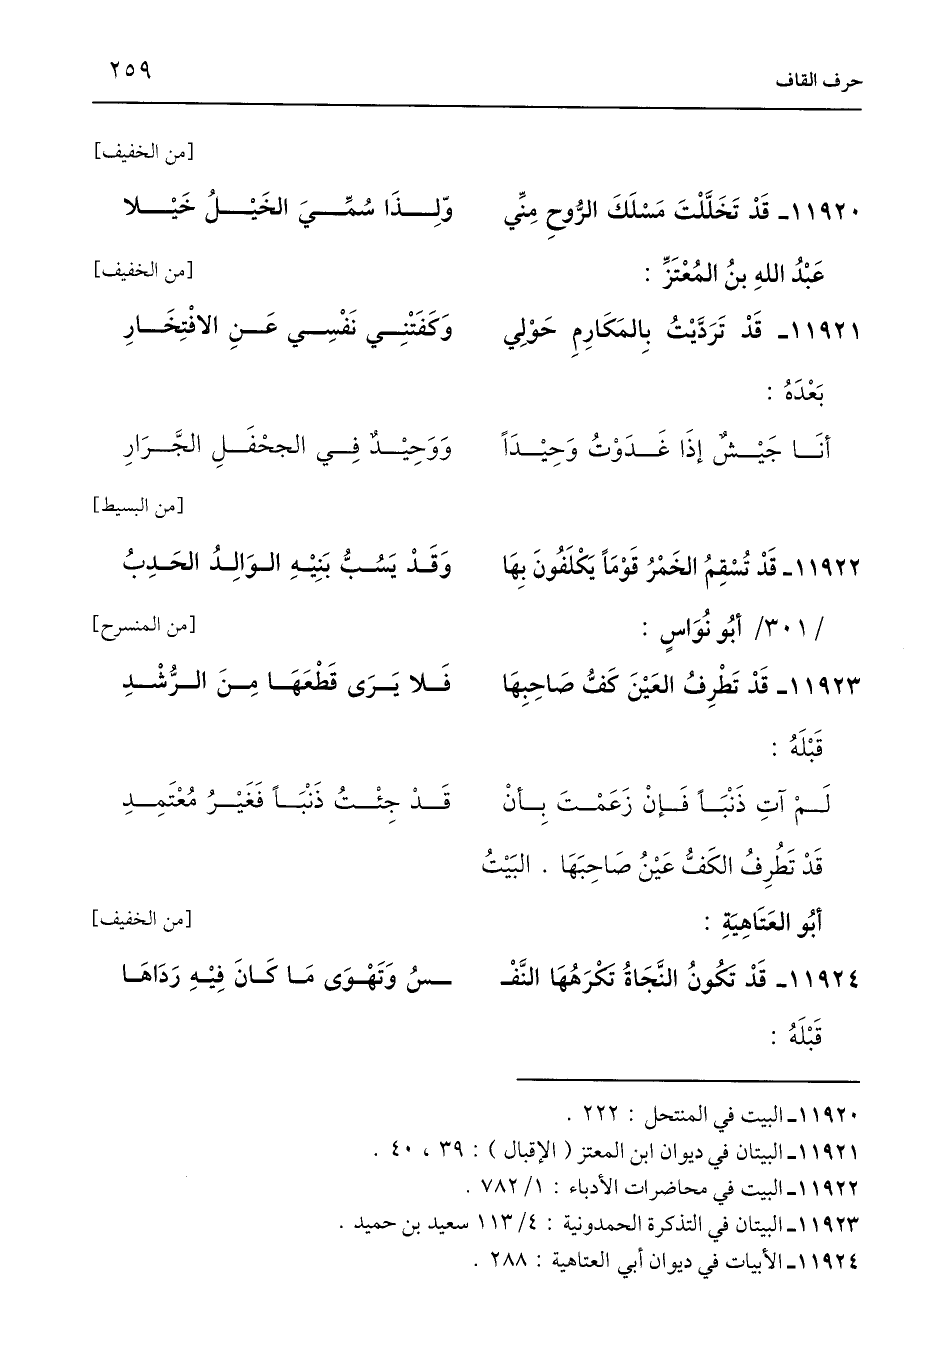 حرف القاف ٢٥٩
[من الخفيف]
١١٩٢٠ـ قَدْ تَخَلَّلْتَ مَسْلَكَ الرُّوحِ مِنِّي وَلِـذَا سُمِّـيَ الخَيْـلُ خَيْـلا
عَبْدُ اللهِ بنُ المُعْتَزِّ : [من الخفيف]
١١٩٢١ـ قَدْ تَرَدَّيْتُ بِالمَكَارِمِ حَوْلِي وَكَفَتْنِـي نَفْسِـي عَـنِ الافْتِخَـارِ
بَعْدَهُ :
أنَـا جَيْـشٌ إذَا غَـدَوْتُ وَحِيْـدَاً وَوَحِيْـدٌ فِـي الجحْفَـلِ الجَّـرَارِ
[من البسيط]
١١٩٢٢ـ قَدْ تُسْقِمُ الخَمْرُ قَوْمَاً يَكْلَفُونَ بِهَا وَقَـدْ يَسُـبُّ بَنِيْـهِ الـوَالِـدُ الحَـدِبُ
/ ٣٠١/ أبُو نُوَاسٍ : [من المنسرح]
١١٩٢٣ـ قَدْ تَطْرِفُ العَيْنَ كَفُّ صَاحِبِهَا فَـلا يَـرَى قَطْعَهَـا مِـنَ الـرُّشْـدِ
قَبْلَهُ :
لَـمْ آتِ ذَنْبَـاً فَـإنْ زَعَمْـتَ بِـأنْ قَـدْ جِئْـتُ ذَنْبَـاً فَغَيْـرُ مُعْتَمِـدِ
قَدْ تَطُرِفُ الكَفُّ عَيْنُ صَاحِبَهَا . البَيْتُ
أبُو العَتَاهِيَةِ : [من الخفيف]
١١٩٢٤ـ قَدْ تَكُونُ النَّجَاةُ تَكْرَهُهَا النَّفْـ ـسُ وَتَهْوَى مَـا كَـانَ فِيْـهِ رَدَاهَـا
قَبْلَهُ :
١١٩٢٠ـ البيت في المنتحل : ٢٢٢ .
١١٩٢١ـ البيتان في ديوان ابن المعتز ( الإقبال ) : ٣٩ ، ٤٠ .
١١٩٢٢ـ البيت في محاضرات الأدباء : ١/ ٧٨٢ .
١١٩٢٣ـ البيتان في التذكرة الحمدونية : ٤/ ١١٣ سعيد بن حميد .
١١٩٢٤ـ الأبيات في ديوان أبي العتاهية : ٢٨٨ .